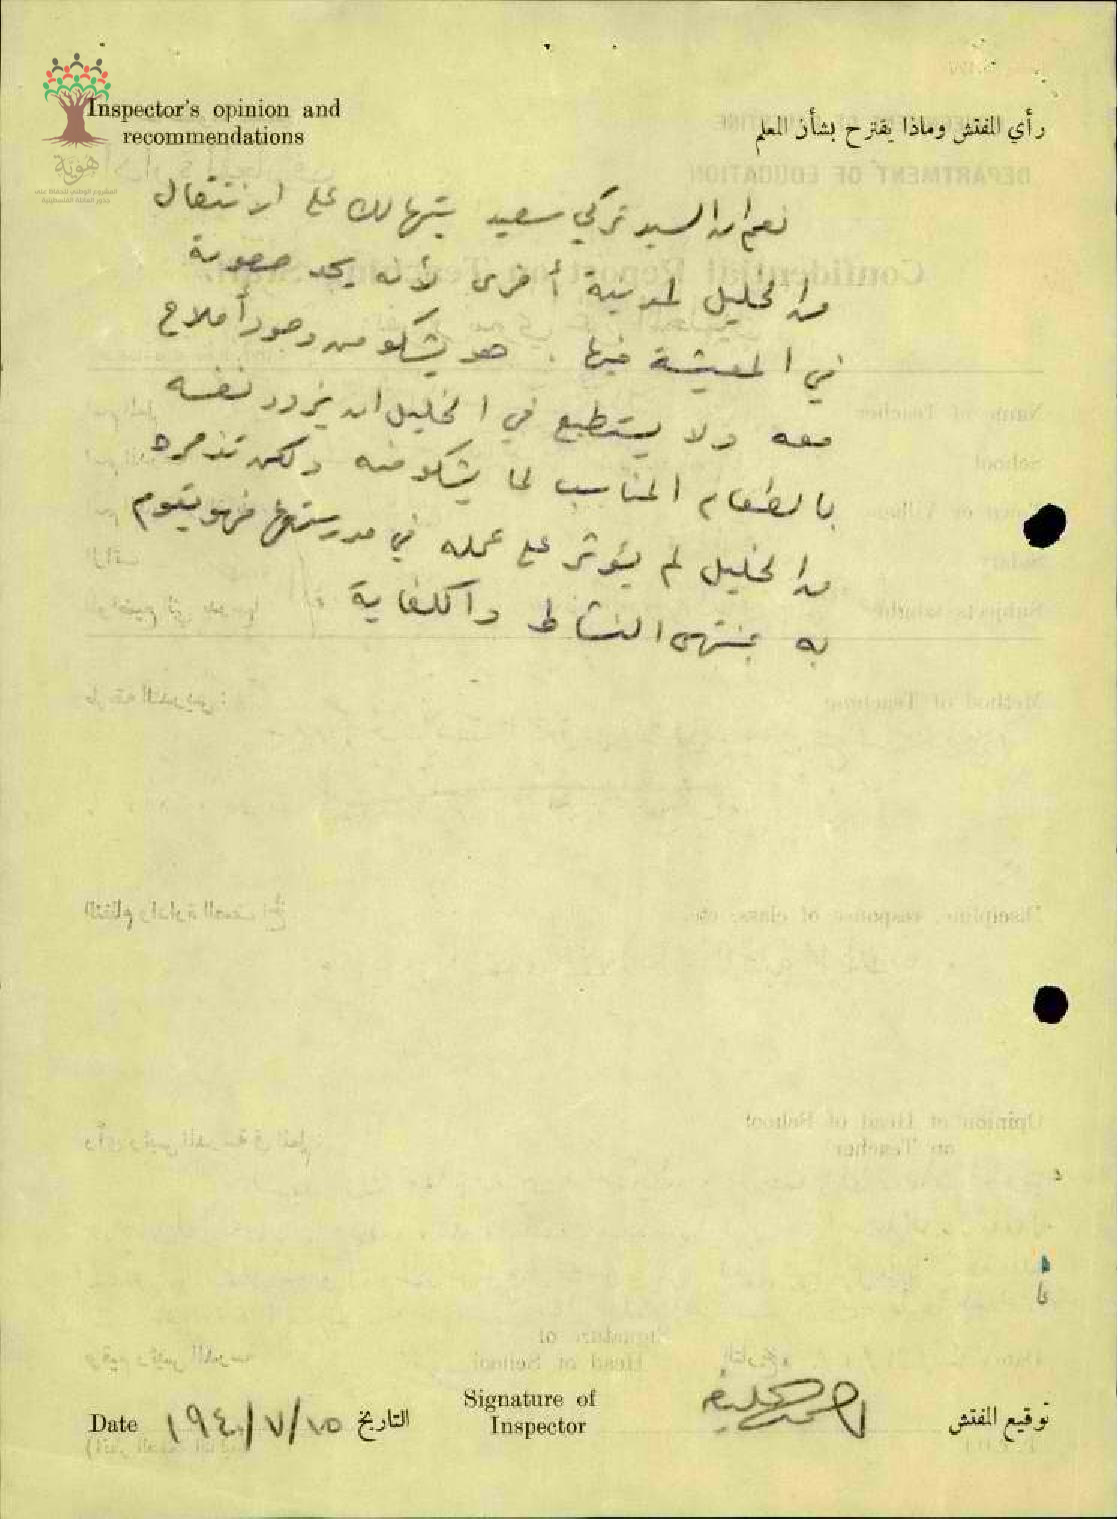 Inspector's opinion and
recommendations
رأي المفتش وماذا يقترح بشأن المعلم
هوية
المشروع الوطني للحفاظ على
جذور العائلة الفلسطينية
نعم ان السيد تركي سعيد يتهالك على الانتقال
من الخليل لمدينة أخرى لأنه يجد صعوبة
في المعيشة فيها . هو يشكو من وجود أملاح
معه ولا يستطيع في الخليل ان يزود نفسه
بالطعام المناسب لما يشكو منه ولكن تذمره
من الخليل لم يؤثر على عمله في مدرستها فهو يقوم
به بمنتهى النشاط والكفاية
Date ١٩٤٠/٧/١٥ التاريخ
Signature of
Inspector
توقيع المفتش